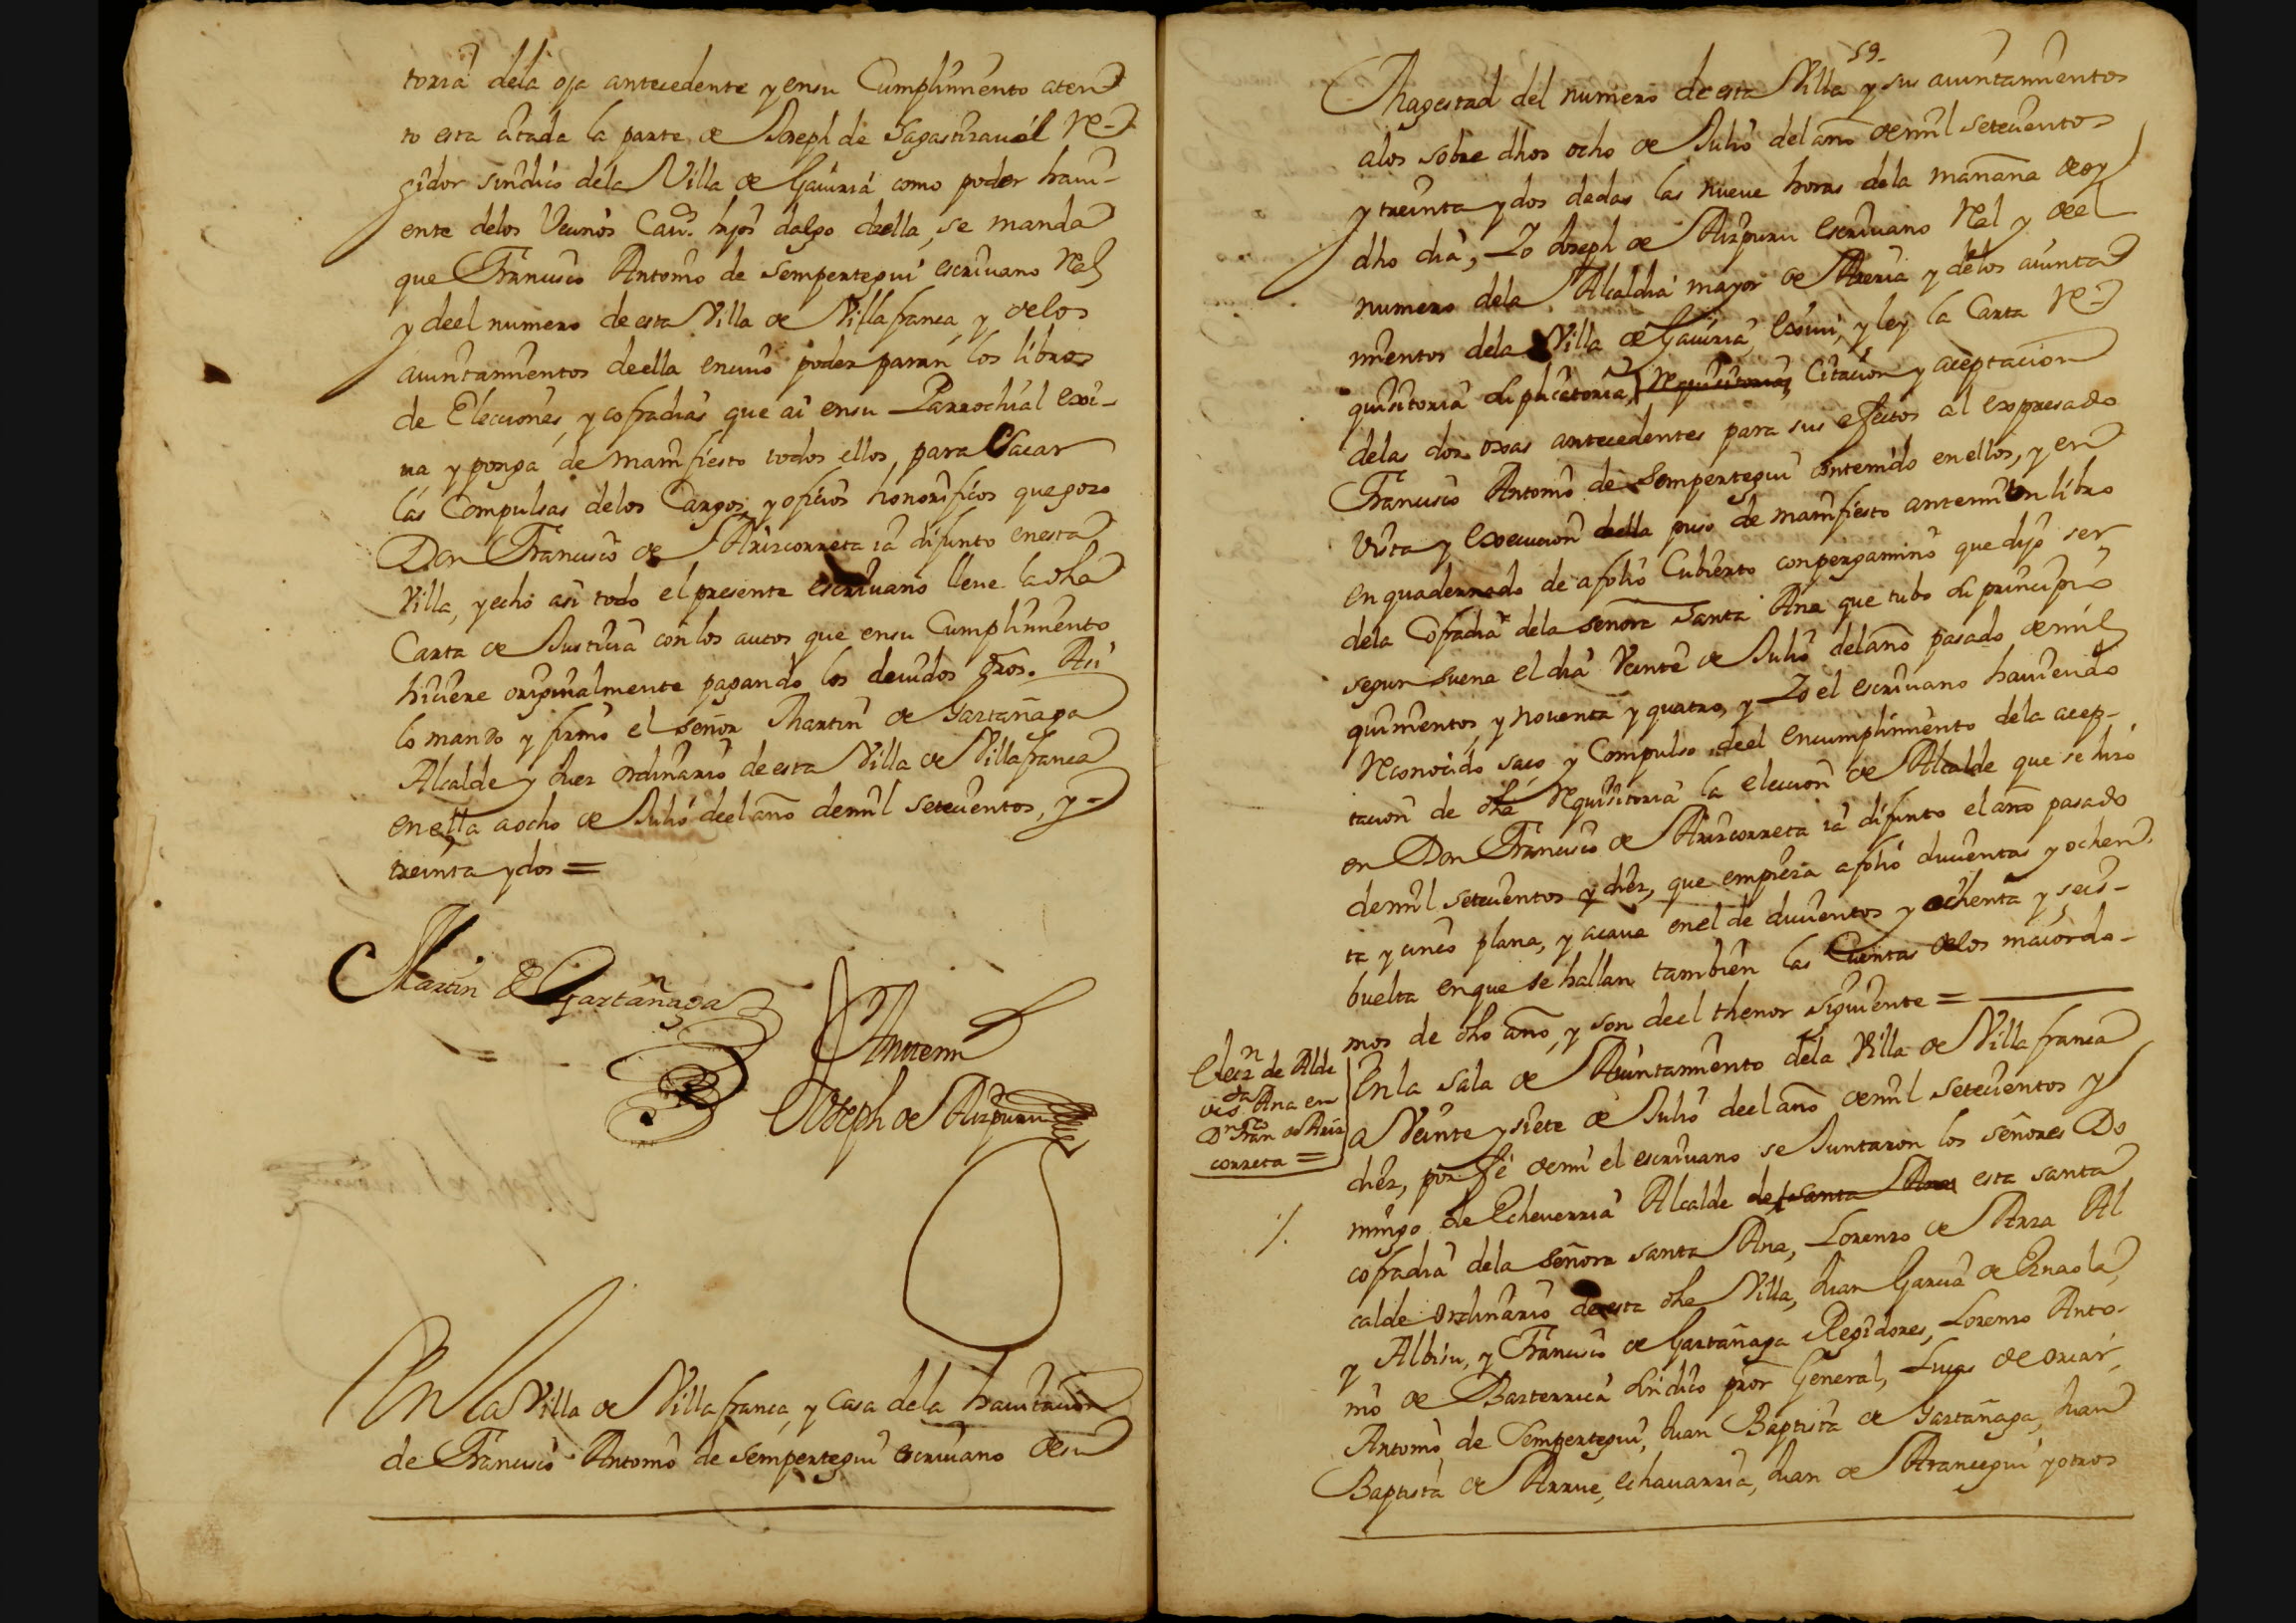 toria dela oja antecedente y ensu Cumplimiento aten
to esta citada la parte de Joseph de Sagastizaval Re-
gidor sindico dela Villa de Gaviria como poder havi-
ente delos Vecinos Cavs. hijos dalgo deella, se manda
que Francisco Antonio de Sempertegui escrivano Rel
y deel numero de esta Villa de Villafranca, y delos
aiuntamientos deella encuio poder paran los libros
de Elecciones, y cofradias que ai ensu Parrochial exsi-
va y ponga de manifiesto todos ellos para sacar
las Compulsas delos Cargos, y oficios honorificos que gozo
Don Francisco de Arizcorreta ia difunto enesta
Villa, y echo asi todo el presente escrivano lleve la dha
Carta de Justicia con los autos que ensu Cumplimiento
hiciere originalmente pagando los devidos dros. Asi
lo mando y firmo el señor Martin de Gaztañaga
Alcalde y Juez ordinario de esta Villa de Villafranca
en ella a ocho de Julio deel año demil setecientos, y
treinta y dos =
Martin de Gaztañaga
Antemi
Joseph de Aizpuru
En la Villa de Villafranca, y casa dela havitacion
de Francisco Antonio de Sempertegui escrivano desu
59
Magestad del numero de esta Villa y sus aiuntamientos
alos sobre dhos ocho de Julio del año demil setecientos
y treinta y dos dadas las nueve horas dela mañana deoy
dho dia, Yo Joseph de Aizpuru escrivano Rel y deel
numero dela Alcaldia mayor de Areria y delos aiunta
mientos dela Villa de Gaviria, exsivi, y ley la Carta Re-
quisitoria suplicatoria, requisitoria, Citacion y aceptacion
delas dos oxas antecedentes para sus efectos al expresado
Francisco Antonio de Sempertegui contenido enellos, y en
vista y execucion deella puso de manifiesto antemi un libro
enquadernado de afolio Cubierto con pergamino que dijo ser
dela Cofradia dela señora Santa Ana que tubo su principio
segun suena el dia Veinte de Julio del año pasado demil
quinientos, y noventa y quatro, y Yo el escrivano haviendo
Reconocido saco y Compulso deel encumplimiento dela acep-
tacion de dha Requisitoria la eleccion de Alcalde que se hizo
en Don Francisco de Arizcorreta ia difunto el año pasado
demil setecientos y diez, que empieza a folio ducientos y ochen
ta y cinco plana, y acava enel de ducientos y ochenta y seis
buelta enque se hallan tambien las Cuentas delos maiordo-
mos de dho año, y son deel thenor siguiente =
Elecn. de Alde
de Sta Ana en
Dn Franco de Ariz
correta =
En la sala de Aiuntamiento dela Villa de Villafranca
a Veinte y siete de Julio deel año demil setecientos y
diez, por fe demi el escrivano se Juntaron los señores Do
mingo de Echeverria Alcalde de santa Ana esta santa
cofradia dela señora santa Ana, Lorenzo de Arza Al
calde ordinario deesta dha Villa, Juan Garcia de Ernaola,
y Albisu, y Francisco de Gaztañaga Regidores, Lorenzo Anto-
nio de Basterrica sindico pror General, Lucas de
Antonio de Sempertegui, Juan Baptista de Gaztañaga, Juan
Baptista de Arrue, echavarria, Juan de Arancegui y otros